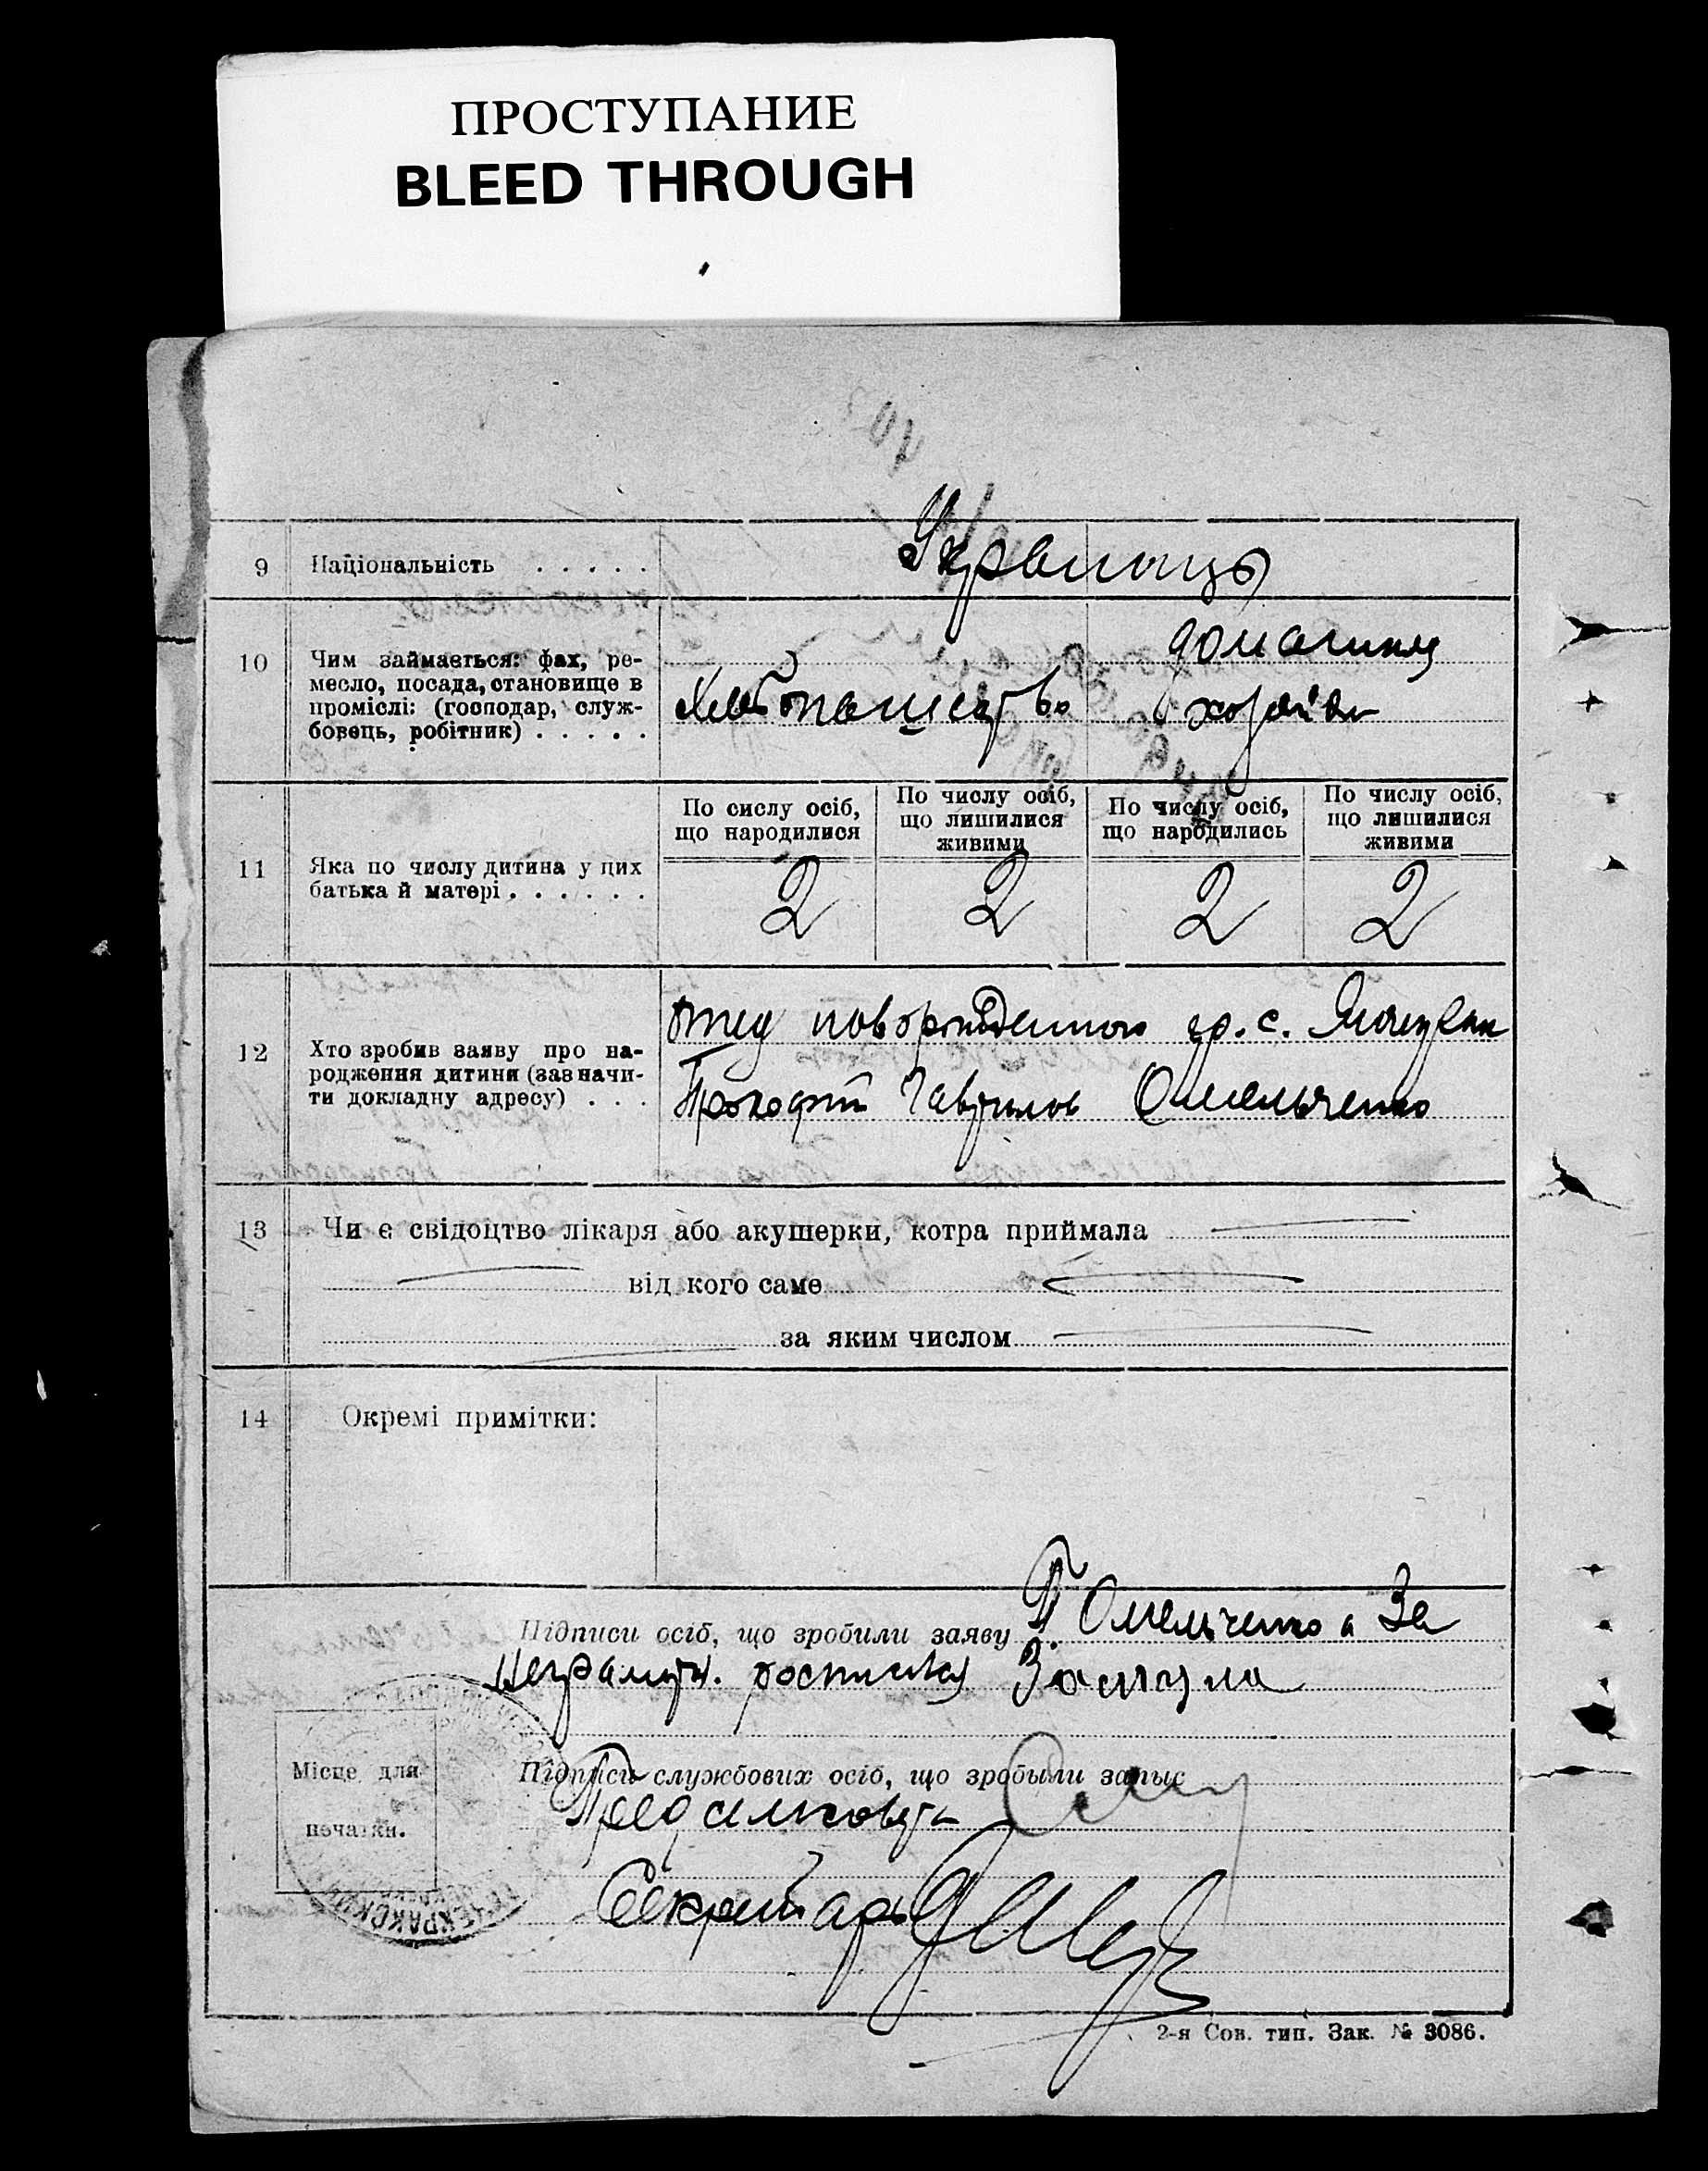 ПРОСТУПАНИЕ
BLEED THROUGH
9 Національність . . . . .
Украинцы
10 Чим займається: фах, ре-
месло, посада, становище в
проміслі: (господар, служ-
бовець, робітник) . . . . .
Хлебопашество
домашняя
11 Яка по числу дитина у цих
батька й матері . . . . . .
По сислу осіб,
що народилися
По числу осіб,
що лишилися
живими
По числу осіб,
що народились
По числу осіб,
що лишилися
живими
2 2 2 2
12 Хто зробив заяву про на-
родження дитини (зазначи-
ти докладну адресу) . . .
Отец новорожденного гр. с.
Прокофий Гаврилов Омельченко
13 Чи є свідоцтво лікаря або акушерки, котра приймала
від кого саме
за яким числом
14 Окремі примітки:
Підписи осіб, що зробили заяву П. Омельченко а За
неграмотн.
Місце для
печатки.
Підписи службових осіб, що зробыли запыс
Секретарь
2-я Сов. тип. Зак. № 3086.